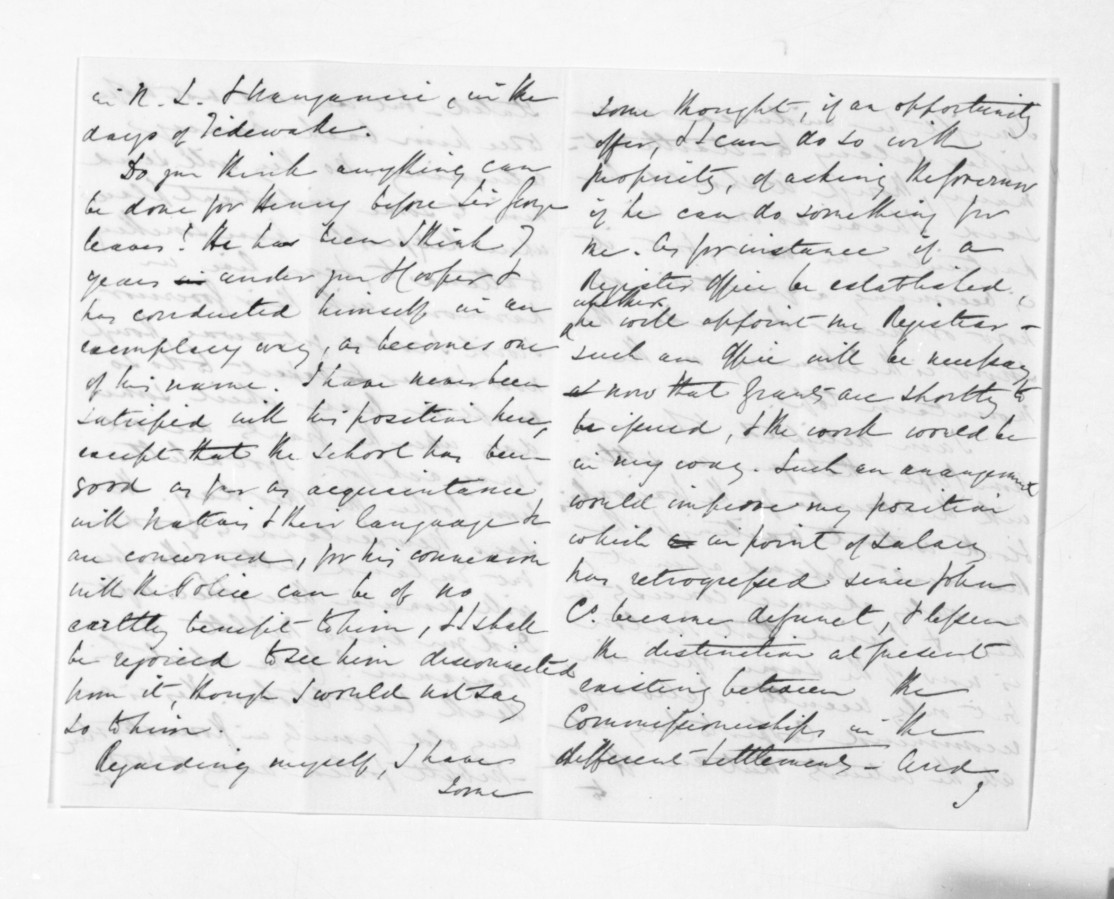 in N. Z. & Wanganui, in the
days of Tidewake.
Do you think anything can
be done for Henry before Sir George
leaves? He has been I think 7
years in under you & Cooper &
has conducted himself in an
exemplary way, as becomes one
of his name. I have never been
satisfied with his position here,
except that the school has been
good as far as acquaintance
with Natives & their language &c
are concerned, for his connexion
with the Police can be of no
earthly benefit to him, & I shall
be rejoiced to see him disconnected
from it, though I would not say
so to him.
Regarding myself, I have
some
some thought, if an opportunity
offer, & I can do so with
propriety, of asking the Governor
if he can do something for
me. As for instance if a
Register Office be established,
whether
he will appoint me Registrar -
such an office will be necessary
as now that Grants are shortly to
be issued, & the work would be
in my way. Such an arrangement
would improve my position
which is in point of salary
has retrogressed since John
C. became defunct, & lessen
the distinction at present
existing between the
Commissionerships in the
different Settlements - And